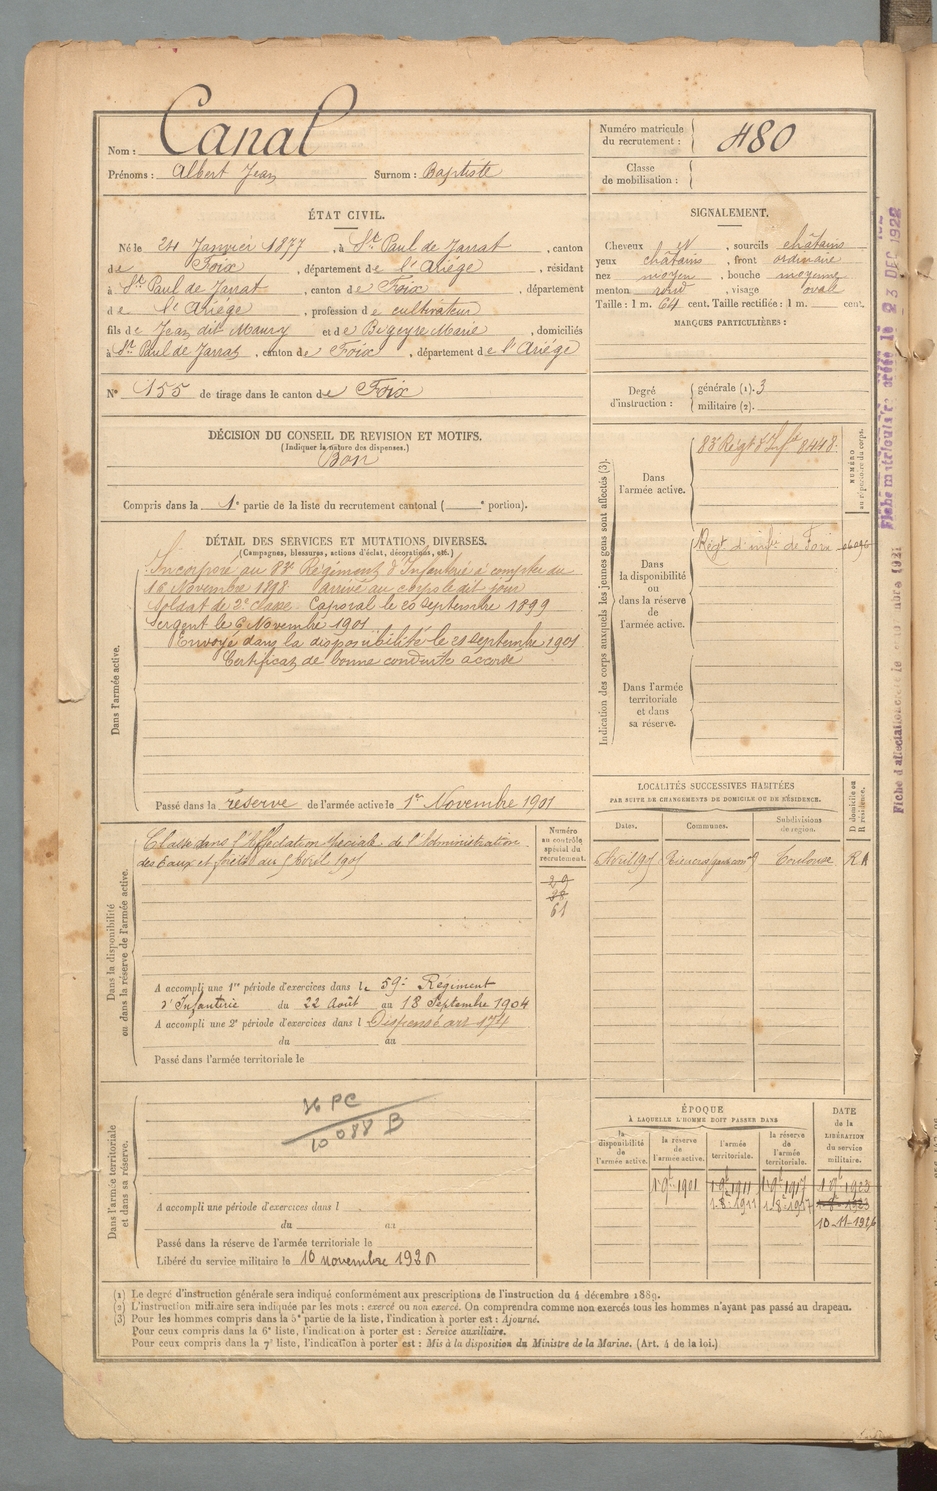 Nom : Canal
Prénoms : Albert Jean Surnom : Baptiste
Numéro matricule du recrutement : 480
Classe de mobilisation :
ÉTAT CIVIL.
Né le 24 Janvier 1877, à St Paul de Jarrat, canton
de Foix, département de l'Ariége, résidant
à St Paul de Jarrat, canton de Foix, département
de l'Ariége, profession de cultivateur
fils de Jean dit Maury et de Bugeyre Marie, domiciliés
à St Paul de Jarrat, canton de Foix, département de l'Ariége
SIGNALEMENT.
Cheveux et, sourcils châtains
yeux châtains, front ordinaire
nez moyen, bouche moyenne
menton rond, visage ovale
Taille : 1 m. 64 cent. Taille rectifiée : 1 m. cent.
MARQUES PARTICULIÈRES :
N° 155 de tirage dans le canton de Foix
Degré d'instruction : générale (1). 3
militaire (2).
DÉCISION DU CONSEIL DE REVISION ET MOTIFS.
(Indiquer la nature des dispenses.)
Bon
Compris dans la 1e partie de la liste du recrutement cantonal ( e portion).
DÉTAIL DES SERVICES ET MUTATIONS DIVERSES.
(Campagnes, blessures, actions d'éclat, décorations, etc.)
Dans l'armée active.
Incorporé au 83e Régiment d'Infanterie à compter du
16 Novembre 1898 arrivé au corps le dit jour
Soldat de 2e classe. Caporal le 20 septembre 1899
Sergent le 6 Novembre 1901
Envoyé dans la disponibilité le 21 septembre 1901
Certificat de bonne conduite accordé
Passé dans la réserve de l'armée active le 1er Novembre 1901
Indication des corps auxquels les jeunes gens sont affectés (3).
Dans l'armée active.
83e Régt d'Infie 8448.
NUMÉRO au répertoire du corps.
Dans la disponibilité ou dans la réserve de l'armée active.
Régt d'infie de Foix
Dans l'armée territoriale et dans sa réserve.
Dans la disponibilité ou dans la réserve de l'armée active.
Classé dans l'Affectation Spéciale de l'Administration
des Eaux et forêts du 5 Avril 1905
Numéro au contrôle spécial du recrutement.
29
38
61
A accompli une 1re période d'exercices dans le 59e Régiment
d'Infanterie du 22 Août au 18 Septembre 1904
A accompli une 2e période d'exercices dans l Dispensé art 174
du au
Passé dans l'armée territoriale le
LOCALITÉS SUCCESSIVES HABITÉES
PAR SUITE DE CHANGEMENTS DE DOMICILE OU DE RÉSIDENCE.
Dates. Communes. Subdivisions de région. D domicile ou R résidence.
Avril 1905 Toulouse R A
Dans l'armée territoriale et dans sa réserve.
PC
10088 B
A accompli une période d'exercices dans l
du au
Passé dans la réserve de l'armée territoriale le
Libéré du service militaire le 10 novembre 1926
ÉPOQUE
À LAQUELLE L'HOMME DOIT PASSER DANS
DATE de la LIBÉRATION du service militaire.
la disponibilité de l'armée active. la réserve de l'armée active. l'armée territoriale. la réserve de l'armée territoriale.
1 9bre 1901 1 9bre 1911 1 9bre 1917 1 9bre 1923
1-8-1911 1-8-1917 1-8-1923
10-11-1926
(1) Le degré d'instruction générale sera indiqué conformément aux prescriptions de l'instruction du 4 décembre 1889.
(2) L'instruction militaire sera indiquée par les mots : exercé ou non exercé. On comprendra comme non exercés tous les hommes n'ayant pas passé au drapeau.
(3) Pour les hommes compris dans la 5e partie de la liste, l'indication à porter est : Ajourné.
Pour ceux compris dans la 6e liste, l'indication à porter est : Service auxiliaire.
Pour ceux compris dans la 7e liste, l'indication à porter est : Mis à la disposition du Ministre de la Marine. (Art. 4 de la loi.)
Fiche matriculaire créée le 23 DEC 1922
Fiche d'affectation créée le